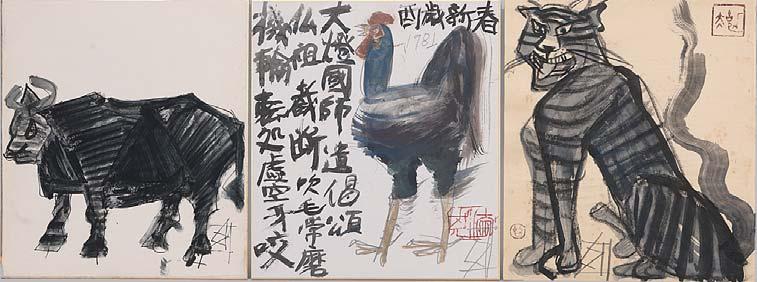 酉歳新春
大燈國師遺偈頌
仏祖截断吹毛常磨
機輪転处虚空牙咬
1781